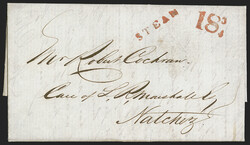 STEAM
18¾
Mr Robert Cochran
Care of L. R. Marshall Esq
Natchez